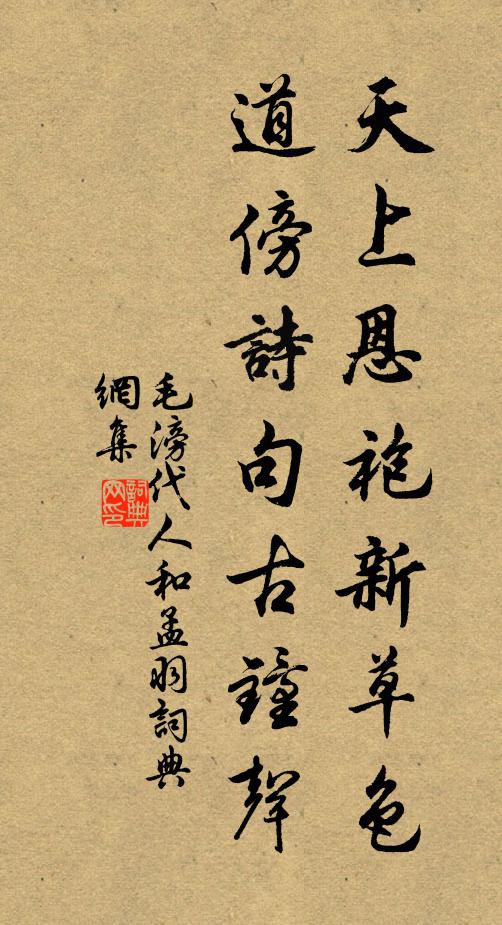 天上恩袍新草色
道傍詩句古鐘聲
毛滂代人和孟羽詞典
網集
詞典
網印